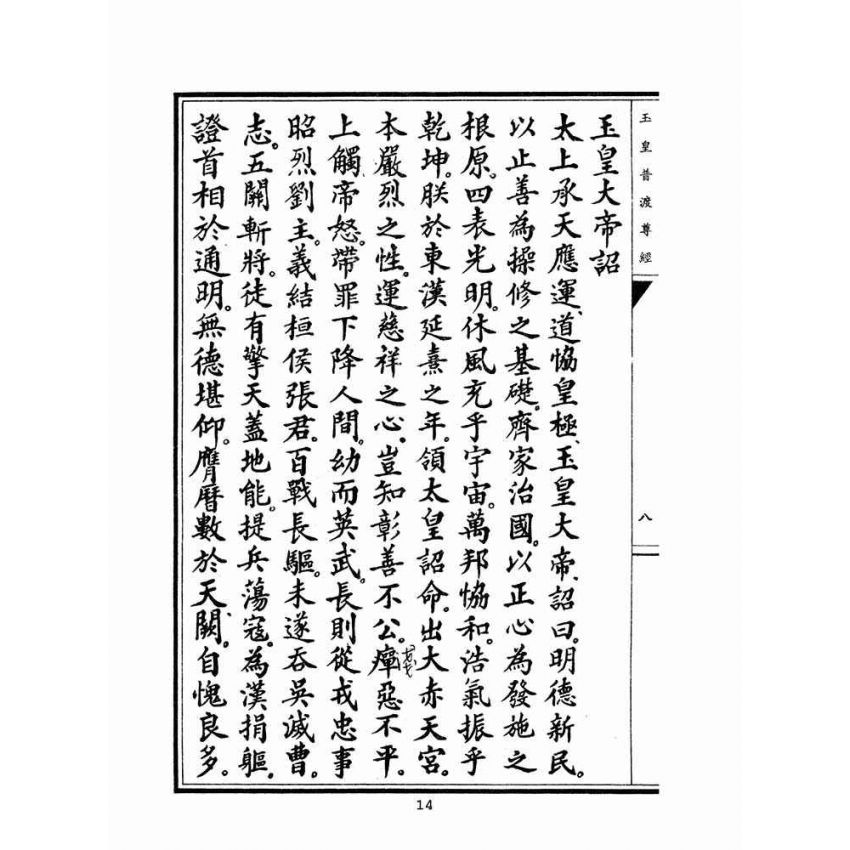 玉皇普渡尊經
八
玉皇大帝詔
太上承天應運、道協皇極、玉皇大帝、詔曰。明德新民。
以止善為操修之基礎。齊家治國。以正心為發施之
根原。四表光明。休風充乎宇宙。萬邦協和。浩氣振乎
乾坤。朕於東漢延熹之年。領太皇詔命。出大赤天宮。
本嚴烈之性。運慈祥之心。豈知彰善不公。瘴惡不平。
上觸帝怒。帶罪下降人間。幼而英武。長則從戎忠事
昭烈劉主。義結桓侯張君。百戰長驅。未遂吞吳滅曹。
志。五關斬將。徒有擎天蓋地能。提兵蕩寇。為漢捐軀。
證首相於通明。無德堪仰。膺曆數於天闕。自愧良多。
14